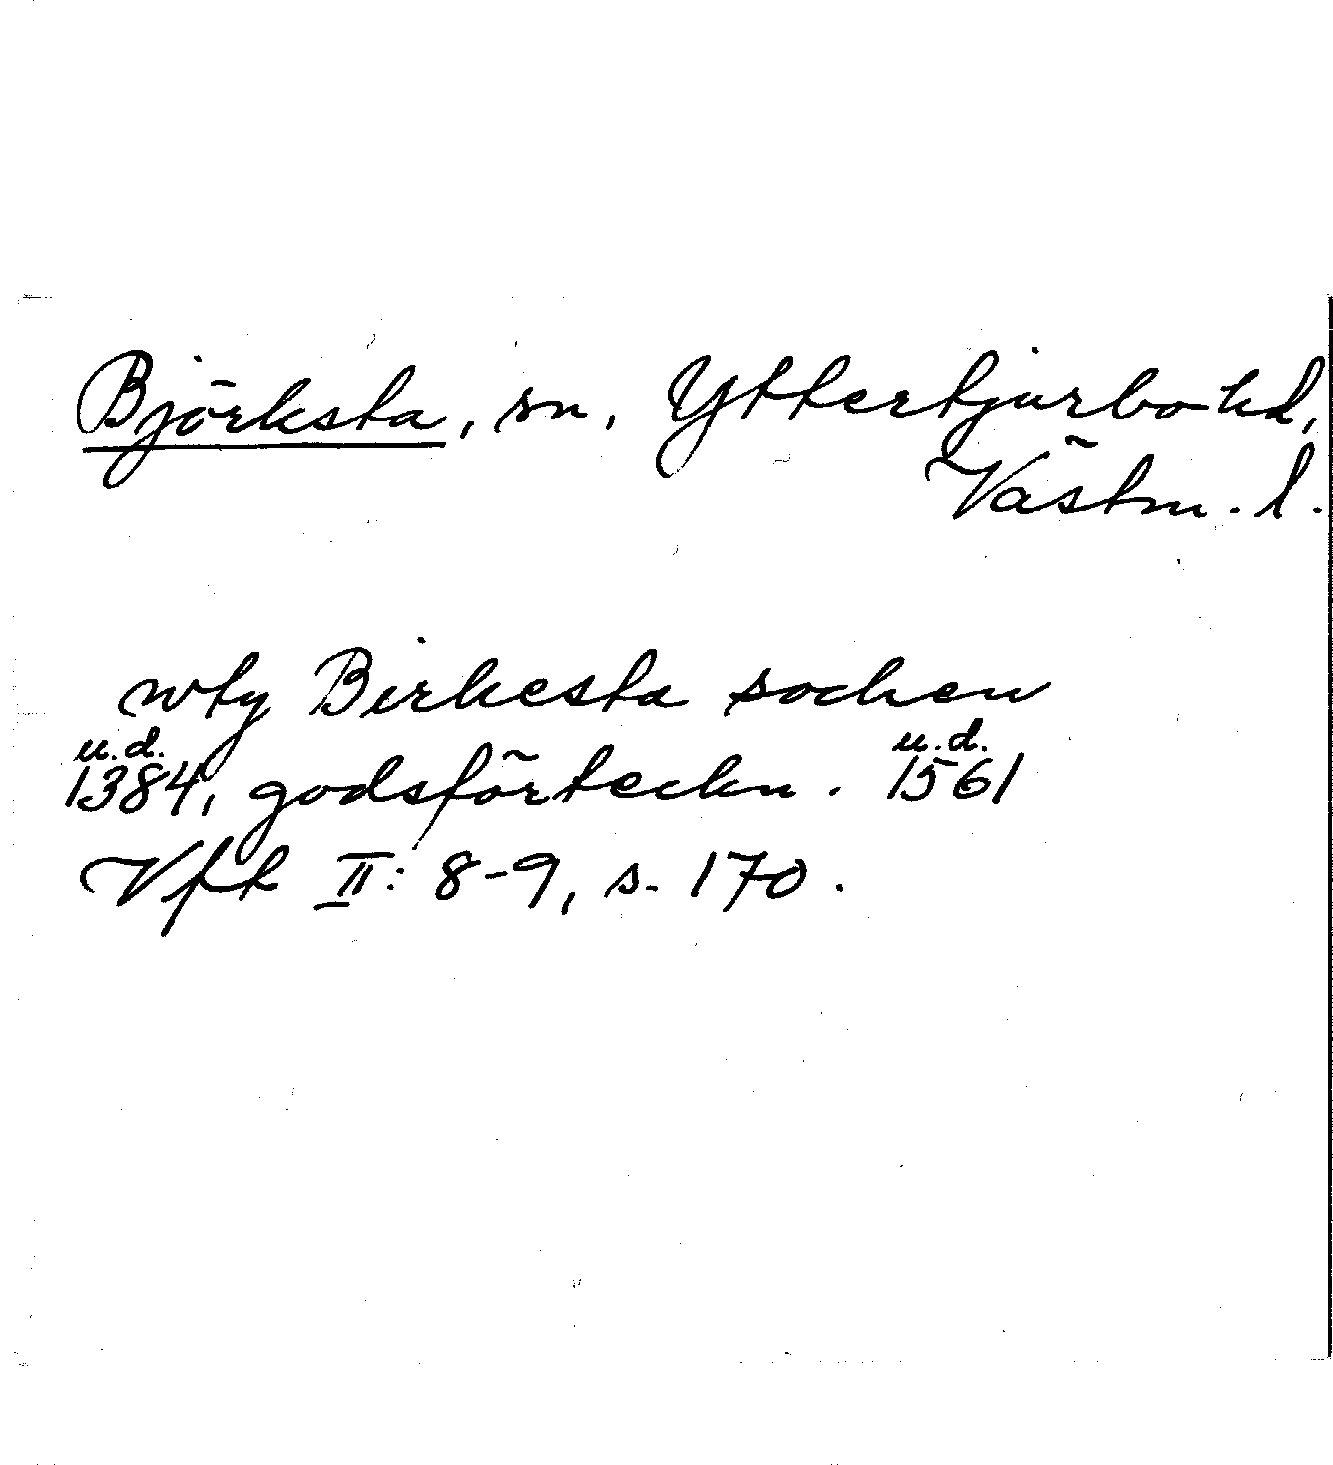 Björksta, sn, Yttertjurbo hd,
Västm. l.
wty Birkesta sochen
u.d. u.d.
1384, godsförteckn. 1561
Vfk II: 8-9, s. 170.